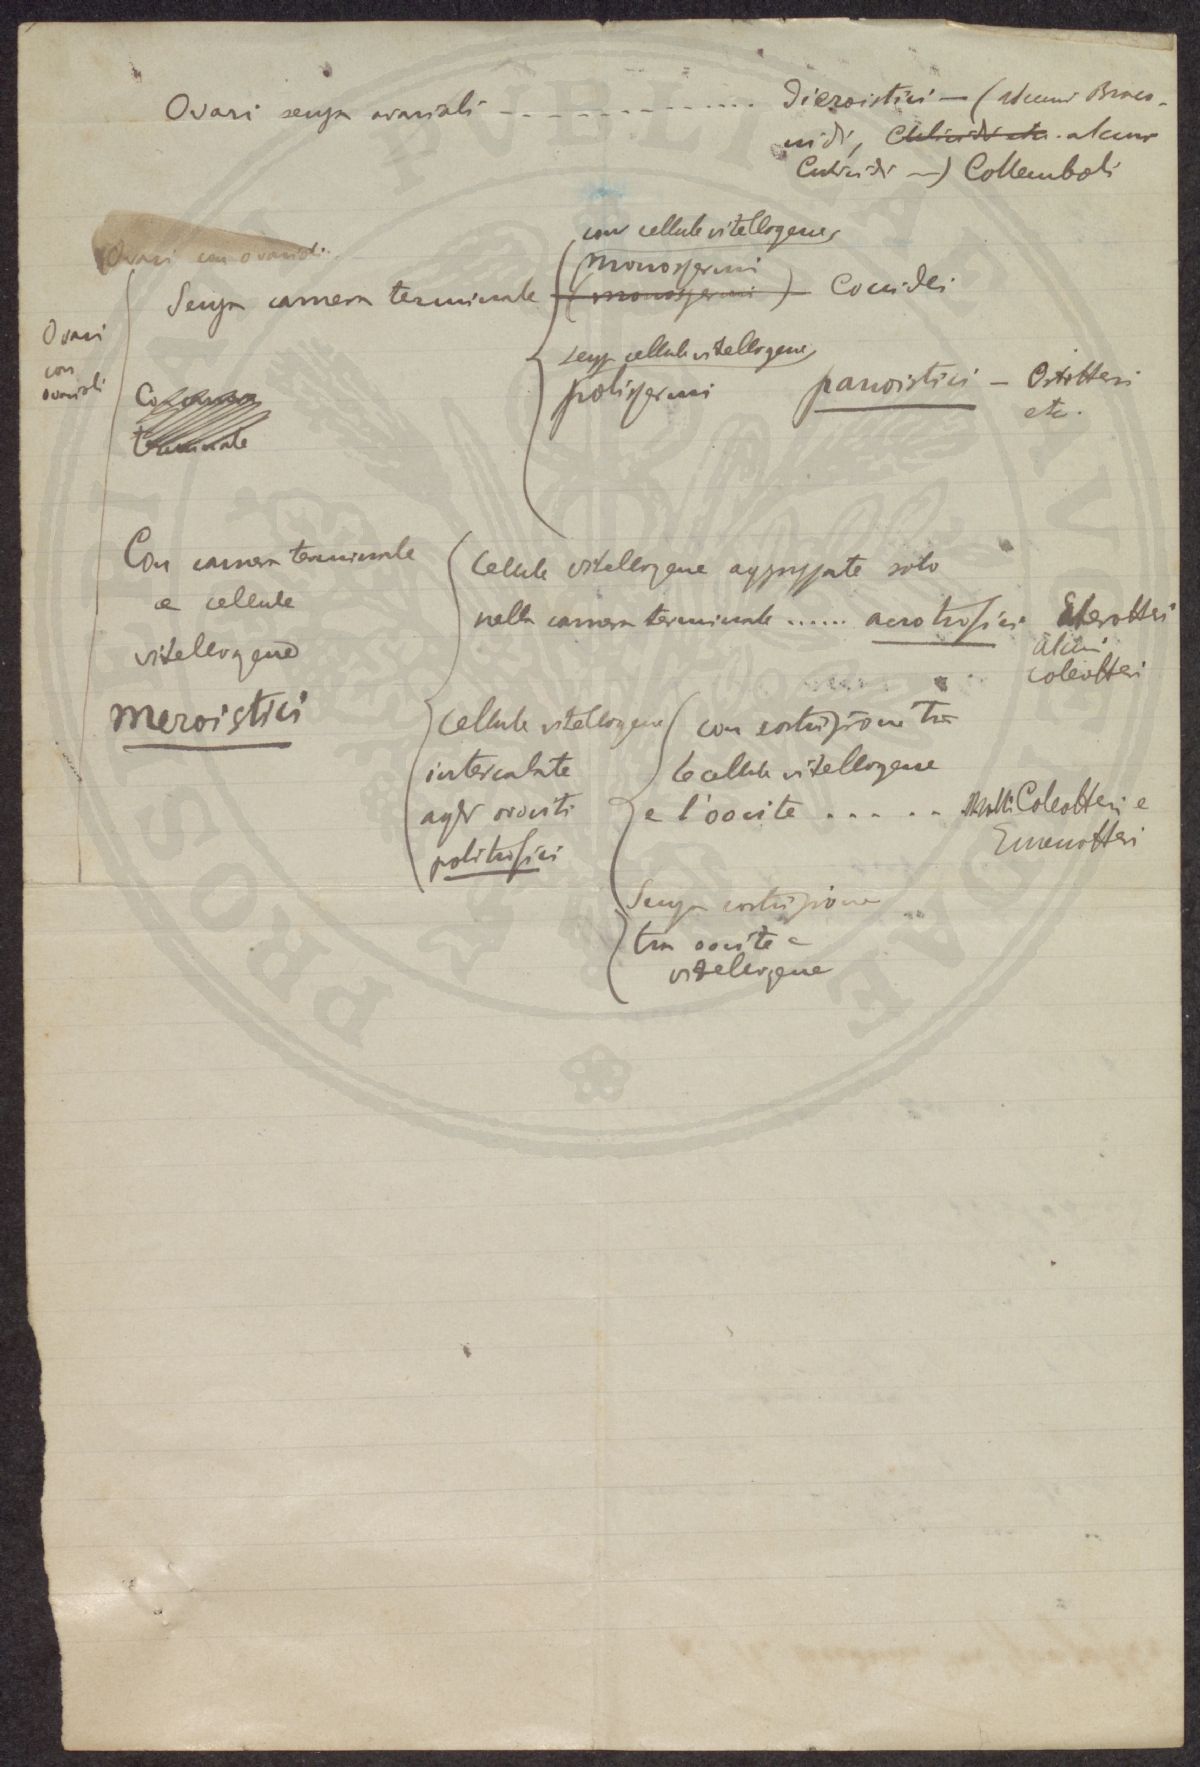 Ovari senza ovarioli - - - - - - - - - - - Dieroistici — (alcuni Braco-
nidi, alcuni
Culicidi —) Collemboli
Ovari con ovarioli.
con cellule vitellogene
monospermi
Senza camera terminale (monospermi) — Coccidei
Ovari
con
ovarioli
senza cellule vitellogene
polispermi panoistici — Ortotteri
etc.
Con camera
terminale
Con camera terminale
e cellule
vitellogene
meroistici
Cellule vitellogene aggruppate solo
nella camera terminale ...... acrotrofici Eterotteri
alcuni
coleotteri
Cellule vitellogene
intercalate
agli oociti
politrofici
con costrizione tra
le cellule vitellogene
e l'oocite . . . . . Molti Coleotteri e
Imenotteri
Senza costrizione
tra oocite e
vitellogene